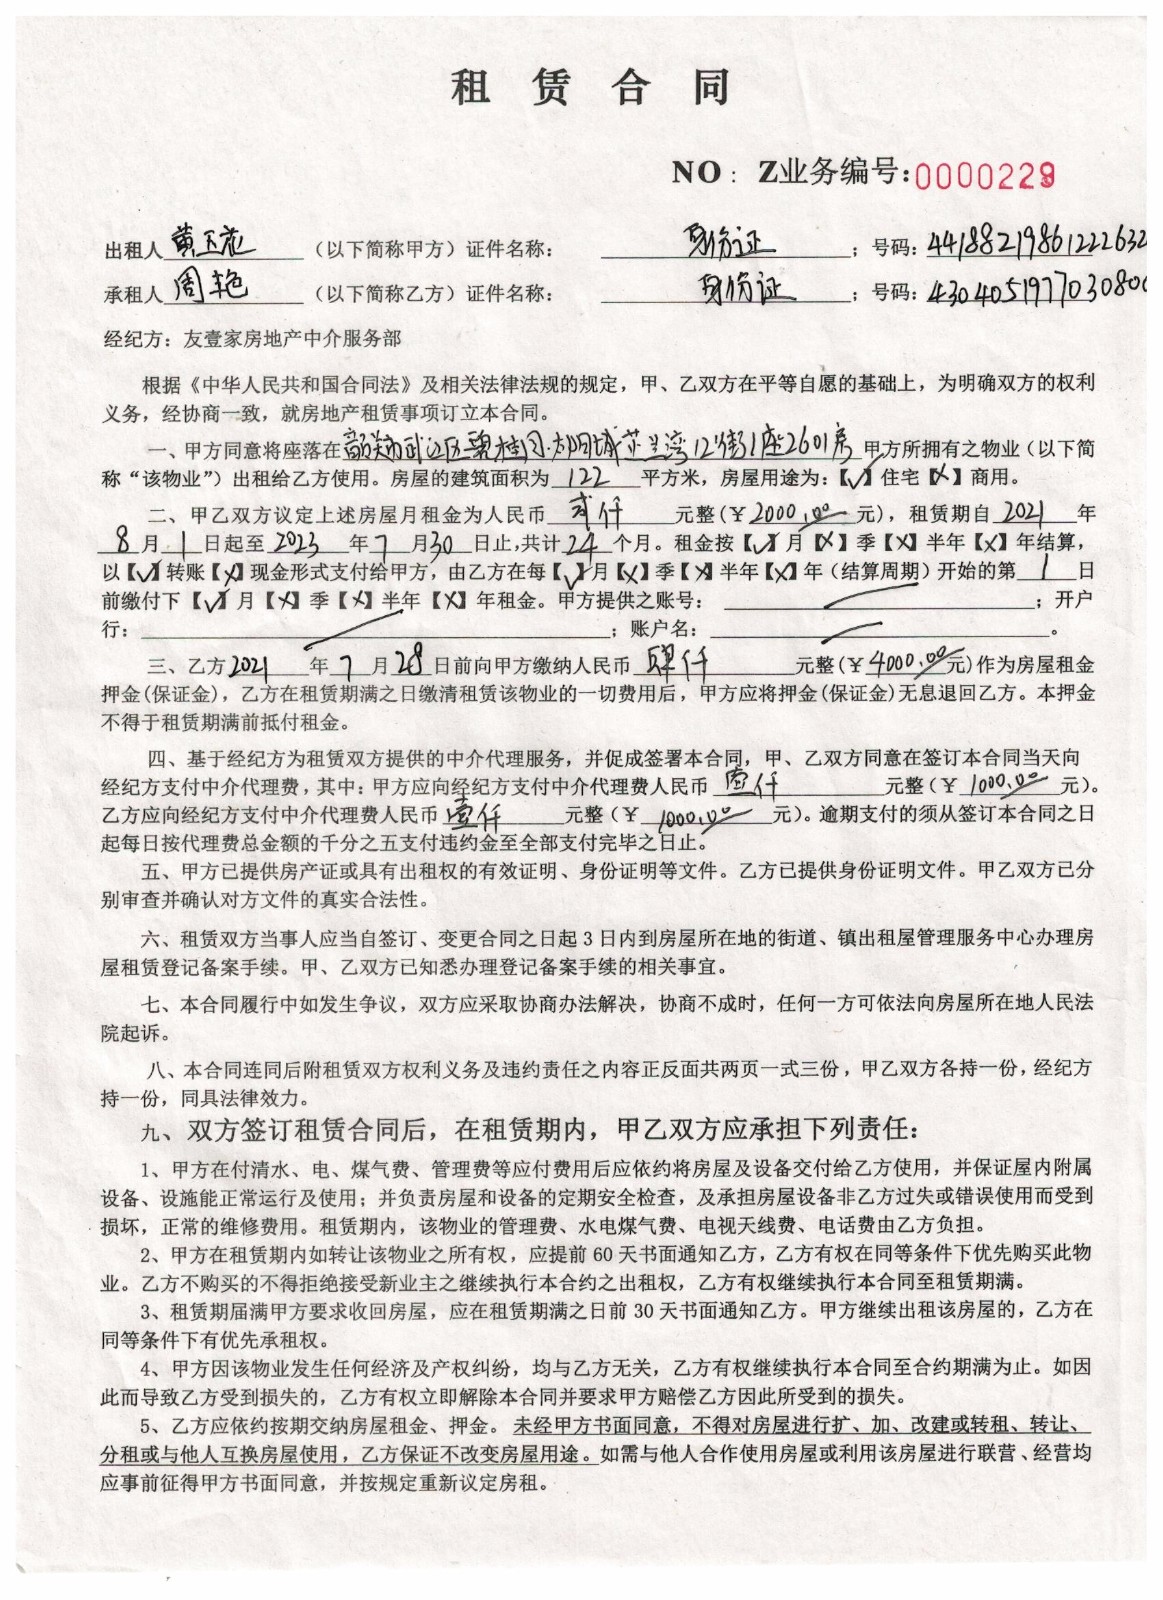 租赁合同
NO：Z业务编号:0000229
出租人黄玉花（以下简称甲方）证件名称：身份证；号码：44188219861222632
承租人周艳（以下简称乙方）证件名称：身份证；号码：4304051977030800
经纪方：友壹家房地产中介服务部
根据《中华人民共和国合同法》及相关法律法规的规定，甲、乙双方在平等自愿的基础上，为明确双方的权利
义务，经协商一致，就房地产租赁事项订立本合同。
一、甲方同意将座落在韶关市武江区碧桂园·太阳城芷兰湾12街1座2601房甲方所拥有之物业（以下简
称“该物业”）出租给乙方使用。房屋的建筑面积为122平方米，房屋用途为：【√】住宅【X】商用。
二、甲乙双方议定上述房屋月租金为人民币贰仟元整(￥2000.00元)，租赁期自2021年
8月1日起至2023年7月30日止,共计24个月。租金按【√】月【X】季【X】半年【X】年结算，
以【√】转账【X】现金形式支付给甲方，由乙方在每【√】月【X】季【X】半年【X】年（结算周期）开始的第1日
前缴付下【√】月【X】季【X】半年【X】年租金。甲方提供之账号：；开户
行：；账户名：。
三、乙方2021年7月28日前向甲方缴纳人民币肆仟元整(￥4000.00元)作为房屋租金
押金(保证金)，乙方在租赁期满之日缴清租赁该物业的一切费用后，甲方应将押金(保证金)无息退回乙方。本押金
不得于租赁期满前抵付租金。
四、基于经纪方为租赁双方提供的中介代理服务，并促成签署本合同，甲、乙双方同意在签订本合同当天向
经纪方支付中介代理费，其中：甲方应向经纪方支付中介代理费人民币壹仟元整（￥1000.00元）。
乙方应向经纪方支付中介代理费人民币壹仟元整（￥1000.00元）。逾期支付的须从签订本合同之日
起每日按代理费总金额的千分之五支付违约金至全部支付完毕之日止。
五、甲方已提供房产证或具有出租权的有效证明、身份证明等文件。乙方已提供身份证明文件。甲乙双方已分
别审查并确认对方文件的真实合法性。
六、租赁双方当事人应当自签订、变更合同之日起3日内到房屋所在地的街道、镇出租屋管理服务中心办理房
屋租赁登记备案手续。甲、乙双方已知悉办理登记备案手续的相关事宜。
七、本合同履行中如发生争议，双方应采取协商办法解决，协商不成时，任何一方可依法向房屋所在地人民法
院起诉。
八、本合同连同后附租赁双方权利义务及违约责任之内容正反面共两页一式三份，甲乙双方各持一份，经纪方
持一份，同具法律效力。
九、双方签订租赁合同后，在租赁期内，甲乙双方应承担下列责任：
1、甲方在付清水、电、煤气费、管理费等应付费用后应依约将房屋及设备交付给乙方使用，并保证屋内附属
设备、设施能正常运行及使用；并负责房屋和设备的定期安全检查，及承担房屋设备非乙方过失或错误使用而受到
损坏，正常的维修费用。租赁期内，该物业的管理费、水电煤气费、电视天线费、电话费由乙方负担。
2、甲方在租赁期内如转让该物业之所有权，应提前60天书面通知乙方，乙方有权在同等条件下优先购买此物
业。乙方不购买的不得拒绝接受新业主之继续执行本合约之出租权，乙方有权继续执行本合同至租赁期满。
3、租赁期届满甲方要求收回房屋，应在租赁期满之日前30天书面通知乙方。甲方继续出租该房屋的，乙方在
同等条件下有优先承租权。
4、甲方因该物业发生任何经济及产权纠纷，均与乙方无关，乙方有权继续执行本合同至合约期满为止。如因
此而导致乙方受到损失的，乙方有权立即解除本合同并要求甲方赔偿乙方因此所受到的损失。
5、乙方应依约按期交纳房屋租金、押金。未经甲方书面同意，不得对房屋进行扩、加、改建或转租、转让、
分租或与他人互换房屋使用，乙方保证不改变房屋用途。如需与他人合作使用房屋或利用该房屋进行联营、经营均
应事前征得甲方书面同意，并按规定重新议定房租。